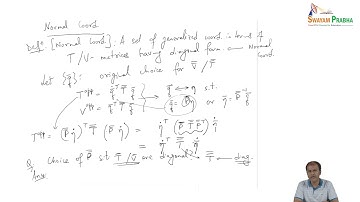 Normal Coord
SWAYAM PRABHA
Defn [Normal Coord]: A set of generalized coord in terms of
T/V- metrices having diagonal form. ← Normal coord.
Let {q̄}: original choice for V̄/T̄
T = q̇ᵀ T̄ q̇
V = q̄ᵀ V̄ q̄
q̄ → η s.t.
q̄ = P̄η or η = P̄⁻¹q̄
T = (P̄ η̇)ᵀ T̄ (P̄ η̇) = η̇ᵀ (P̄ T̄ P̄ᵀ) η̇
= η̇ᵀ T̄ η̇
Q. Choice of P̄ s.t T̄/V̄ are diagonal? T̄ ← diag.
Ans: